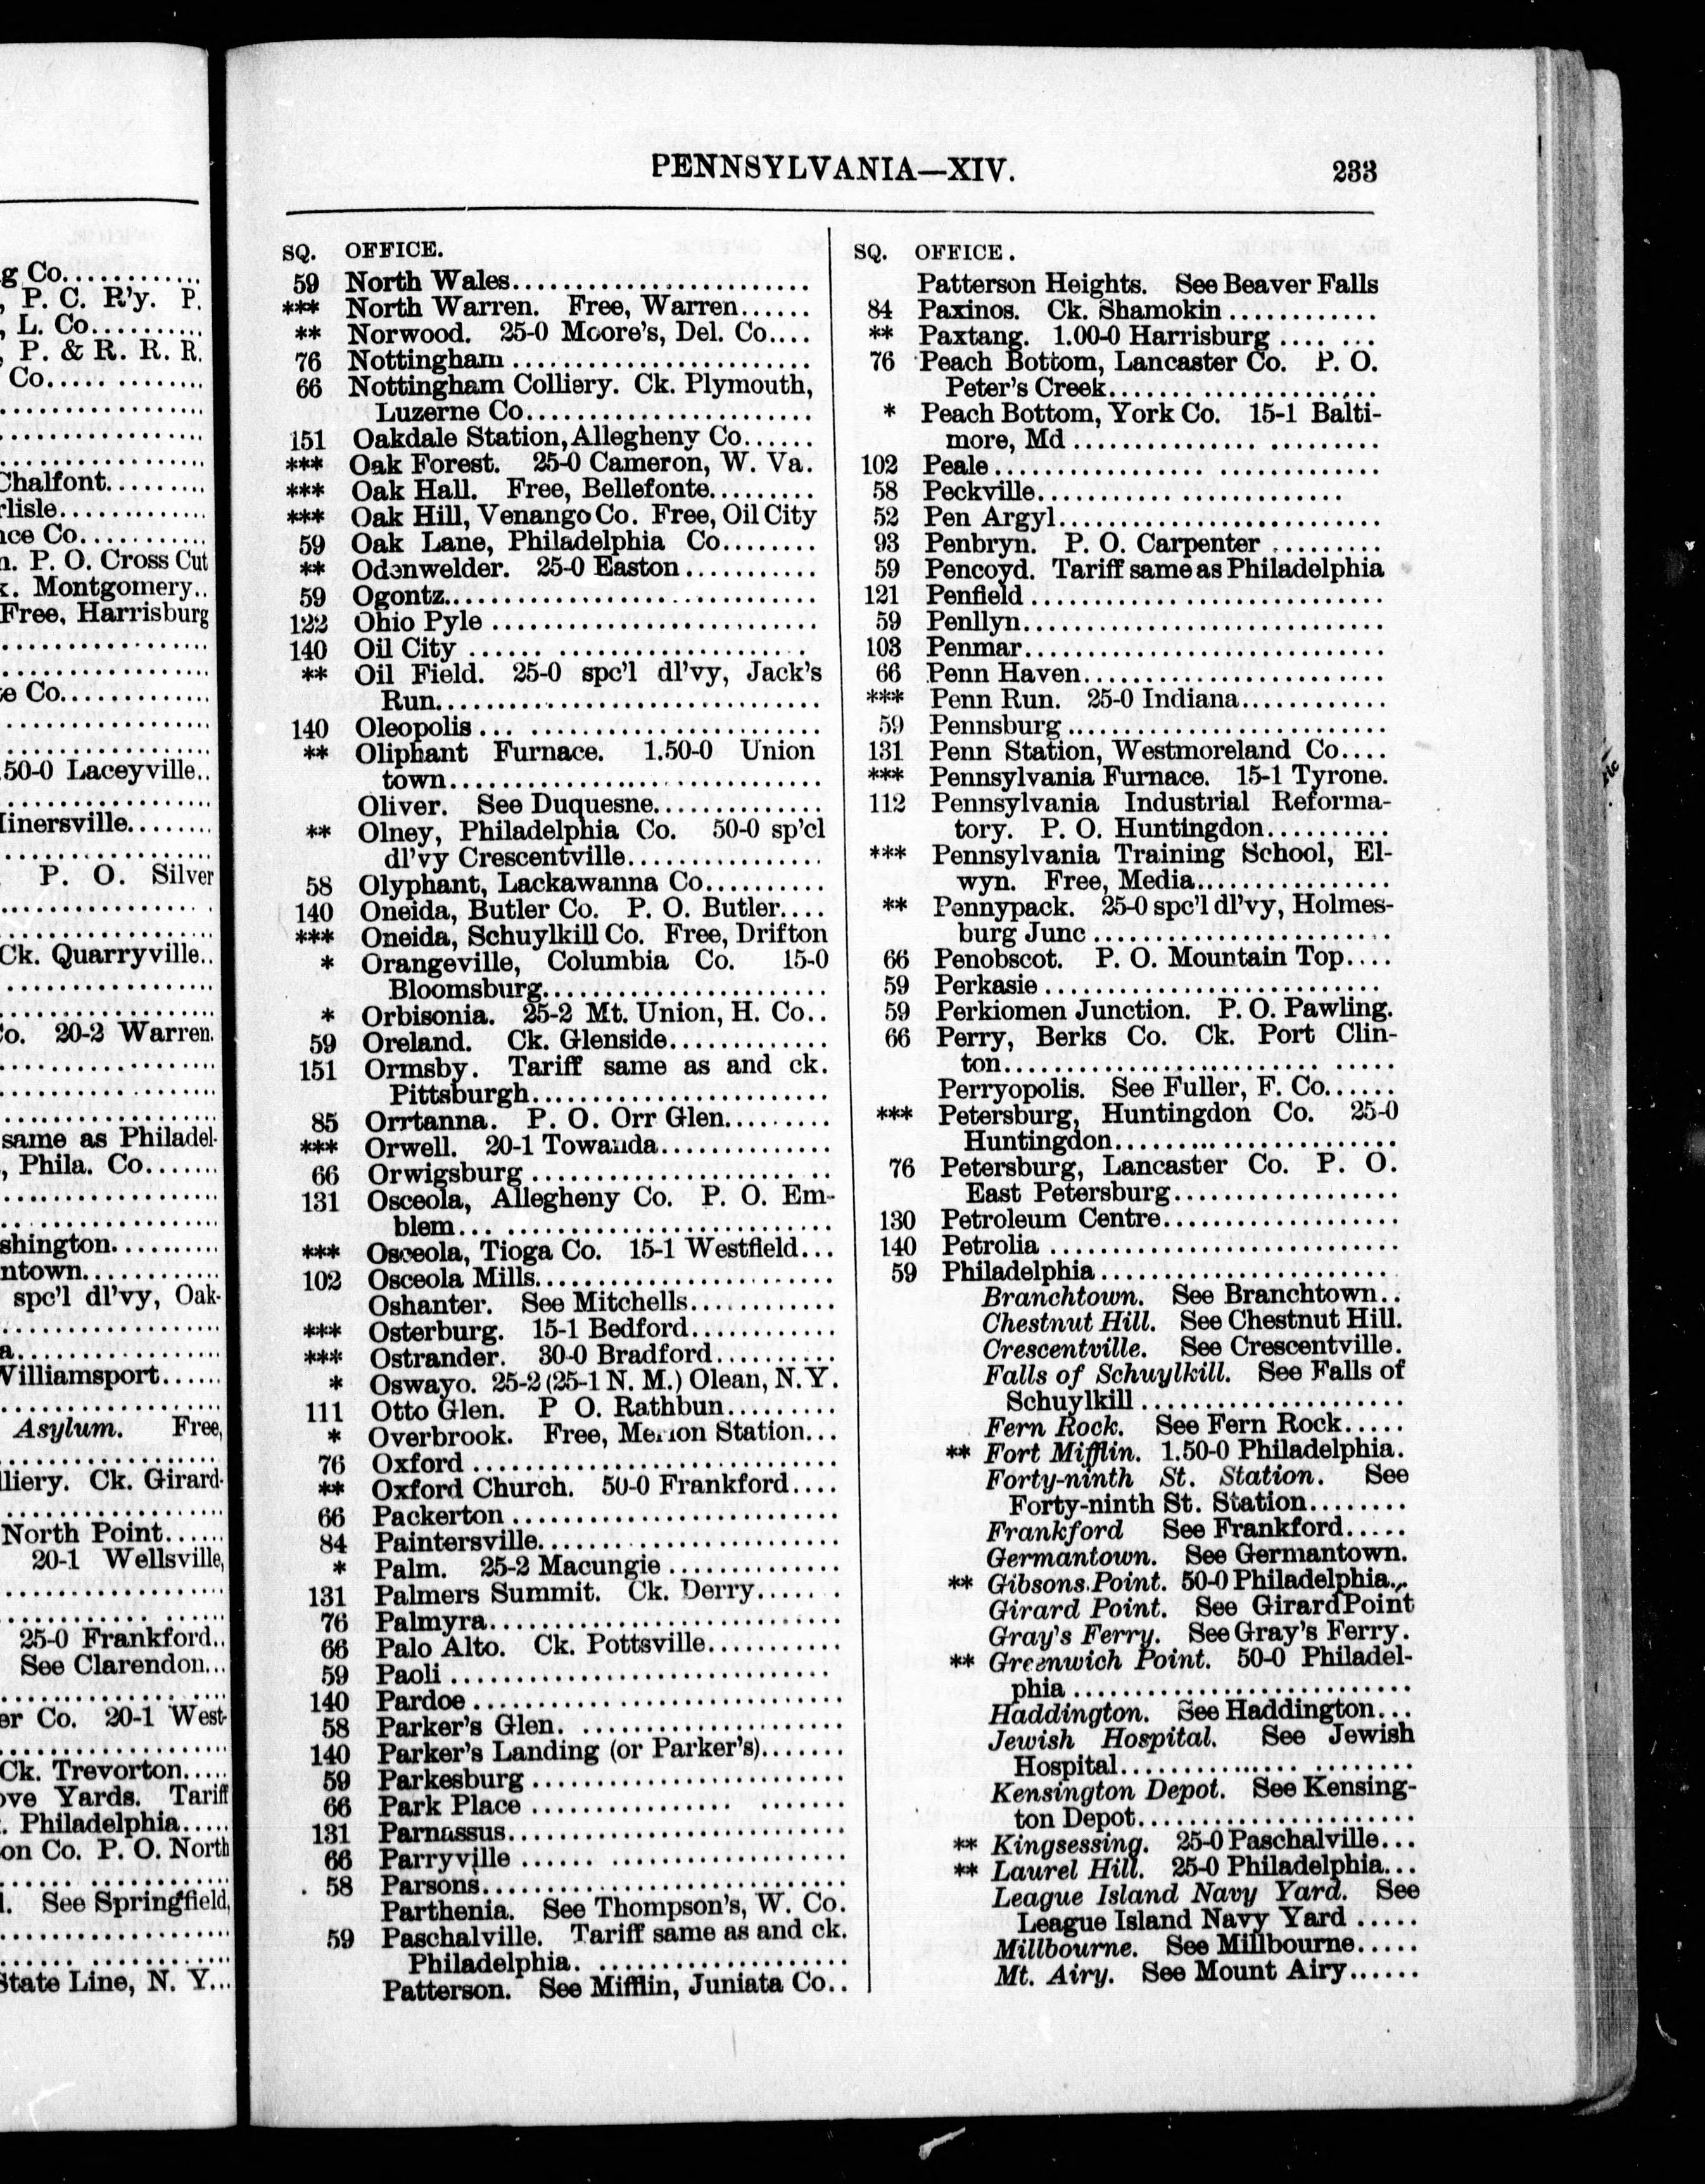 g Co............
, P. C. R'y. P.
, L. Co..........
, P. & R. R. R.
Co..............
Chalfont.........
rlisle.............
nce Co...........
n. P. O. Cross Cut
k. Montgomery..
Free, Harrisburg
te Co............
.50-0 Laceyville..
Minersville........
P. O. Silver
Ck. Quarryville..
Co. 20-2 Warren.
same as Philadel-
, Phila. Co.......
shington..........
ntown............
spc'l dl'vy, Oak-
a.................
Williamsport......
Asylum. Free,
lliery. Ck. Girard-
North Point......
20-1 Wellsville,
25-0 Frankford..
See Clarendon...
er Co. 20-1 West-
Ck. Trevorton.....
ove Yards. Tariff
. Philadelphia.....
on Co. P. O. North
l. See Springfield,
State Line, N. Y...
PENNSYLVANIA—XIV. 233
SQ. OFFICE.
59 North Wales............................
*** North Warren. Free, Warren......
** Norwood. 25-0 Moore's, Del. Co....
76 Nottingham ............................
66 Nottingham Colliery. Ck. Plymouth,
Luzerne Co............................
151 Oakdale Station, Allegheny Co......
*** Oak Forest. 25-0 Cameron, W. Va.
*** Oak Hall. Free, Bellefonte.........
*** Oak Hill, Venango Co. Free, Oil City
59 Oak Lane, Philadelphia Co........
** Odenwelder. 25-0 Easton...........
59 Ogontz....................................
122 Ohio Pyle ................................
140 Oil City ..................................
** Oil Field. 25-0 spc'l dl'vy, Jack's
Run.....................................
140 Oleopolis .................................
** Oliphant Furnace. 1.50-0 Union
town....................................
Oliver. See Duquesne..............
** Olney, Philadelphia Co. 50-0 sp'cl
dl'vy Crescentville................
58 Olyphant, Lackawanna Co..........
140 Oneida, Butler Co. P. O. Butler....
*** Oneida, Schuylkill Co. Free, Drifton
* Orangeville, Columbia Co. 15-0
Bloomsburg...........................
* Orbisonia. 25-2 Mt. Union, H. Co..
59 Oreland. Ck. Glenside.............
151 Ormsby. Tariff same as and ck.
Pittsburgh............................
85 Orrtanna. P. O. Orr Glen..........
*** Orwell. 20-1 Towanda..............
66 Orwigsburg .............................
131 Osceola, Allegheny Co. P. O. Em-
blem...................................
*** Osceola, Tioga Co. 15-1 Westfield...
102 Osceola Mills............................
Oshanter. See Mitchells............
*** Osterburg. 15-1 Bedford............
*** Ostrander. 30-0 Bradford..........
* Oswayo. 25-2 (25-1 N. M.) Olean, N. Y.
111 Otto Glen. P O. Rathbun.........
* Overbrook. Free, Merion Station...
76 Oxford ...................................
** Oxford Church. 50-0 Frankford....
66 Packerton ...............................
84 Paintersville.............................
* Palm. 25-2 Macungie ..............
131 Palmers Summit. Ck. Derry......
76 Palmyra..................................
66 Palo Alto. Ck. Pottsville...........
59 Paoli .....................................
140 Pardoe ...................................
58 Parker's Glen. ..........................
140 Parker's Landing (or Parker's).......
59 Parkesburg ..............................
66 Park Place ..............................
131 Parnassus................................
66 Parryville ...............................
58 Parsons...................................
Parthenia. See Thompson's, W. Co.
59 Paschalville. Tariff same as and ck.
Philadelphia. ........................
Patterson. See Mifflin, Juniata Co..
SQ. OFFICE.
Patterson Heights. See Beaver Falls
84 Paxinos. Ck. Shamokin ............
** Paxtang. 1.00-0 Harrisburg .... ...
76 Peach Bottom, Lancaster Co. P. O.
Peter's Creek..........................
* Peach Bottom, York Co. 15-1 Balti-
more, Md .............................
102 Peale .....................................
58 Peckville.................................
52 Pen Argyl................................
93 Penbryn. P. O. Carpenter ..........
59 Pencoyd. Tariff same as Philadelphia
121 Penfield ..................................
59 Penllyn...................................
103 Penmar...................................
66 Penn Haven.............................
*** Penn Run. 25-0 Indiana............
59 Pennsburg ...............................
131 Penn Station, Westmoreland Co....
*** Pennsylvania Furnace. 15-1 Tyrone.
112 Pennsylvania Industrial Reforma-
tory. P. O. Huntingdon..........
*** Pennsylvania Training School, El-
wyn. Free, Media................
** Pennypack. 25-0 spc'l dl'vy, Holmes-
burg Junc .............................
66 Penobscot. P. O. Mountain Top....
59 Perkasie .................................
59 Perkiomen Junction. P. O. Pawling.
66 Perry, Berks Co. Ck. Port Clin-
ton.....................................
Perryopolis. See Fuller, F. Co......
*** Petersburg, Huntingdon Co. 25-0
Huntingdon...........................
76 Petersburg, Lancaster Co. P. O.
East Petersburg......................
130 Petroleum Centre.......................
140 Petrolia ..................................
59 Philadelphia.............................
Branchtown. See Branchtown..
Chestnut Hill. See Chestnut Hill.
Crescentville. See Crescentville.
Falls of Schuylkill. See Falls of
Schuylkill ..........................
Fern Rock. See Fern Rock.....
** Fort Mifflin. 1.50-0 Philadelphia.
Forty-ninth St. Station. See
Forty-ninth St. Station........
Frankford See Frankford.....
Germantown. See Germantown.
** Gibsons Point. 50-0 Philadelphia...
Girard Point. See Girard Point
Gray's Ferry. See Gray's Ferry.
** Greenwich Point. 50-0 Philadel-
phia ................................
Haddington. See Haddington...
Jewish Hospital. See Jewish
Hospital............................
Kensington Depot. See Kensing-
ton Depot..........................
** Kingsessing. 25-0 Paschalville...
** Laurel Hill. 25-0 Philadelphia...
League Island Navy Yard. See
League Island Navy Yard .....
Millbourne. See Millbourne.....
Mt. Airy. See Mount Airy......